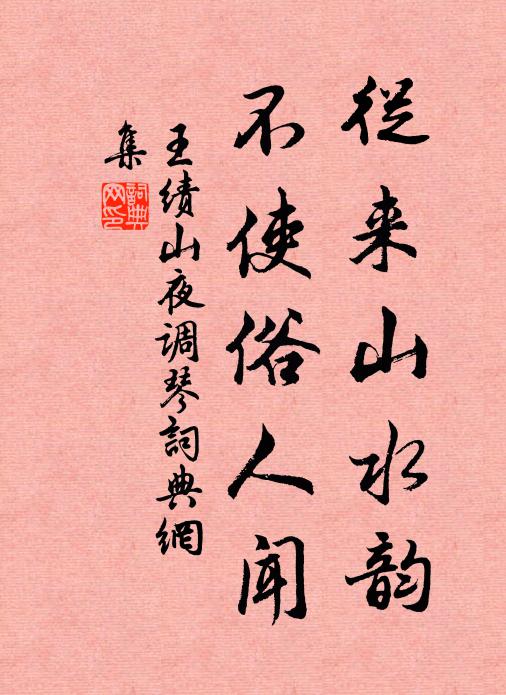 從来山水韵
不使俗人闻
王绩山夜调琴詞典網
集
詞典
网印